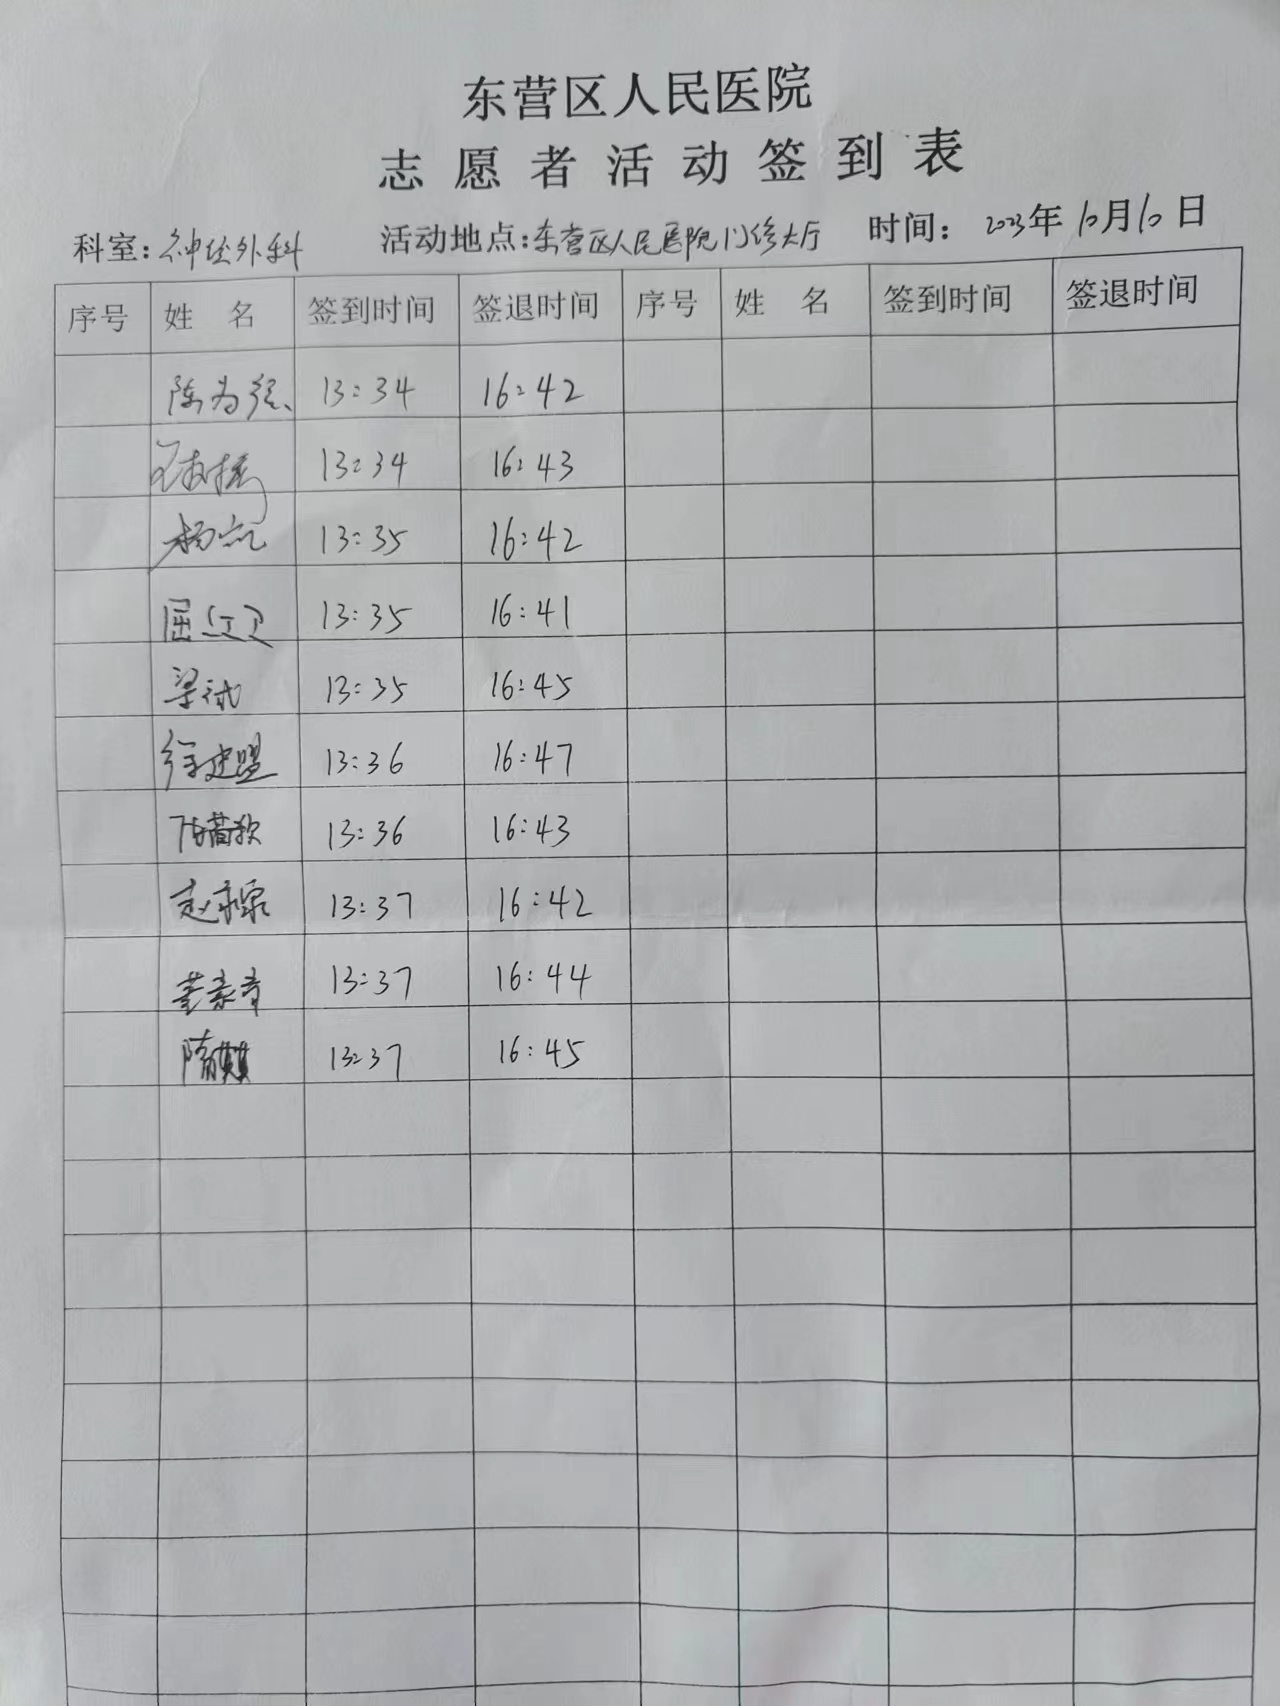 东营区人民医院
志愿者活动签到表
科室：神经外科 活动地点：东营区人民医院门诊大厅 时间：2023年10月10日
序号 姓名 签到时间 签退时间 序号 姓名 签到时间 签退时间
陈为强 13:34 16:42
13:34 16:43
杨凯 13:35 16:42
屈江卫 13:35 16:41
梁斌 13:35 16:45
徐建盟 13:36 16:47
13:36 16:43
赵 13:37 16:42
董素青 13:37 16:44
隋麒麒 13:37 16:45